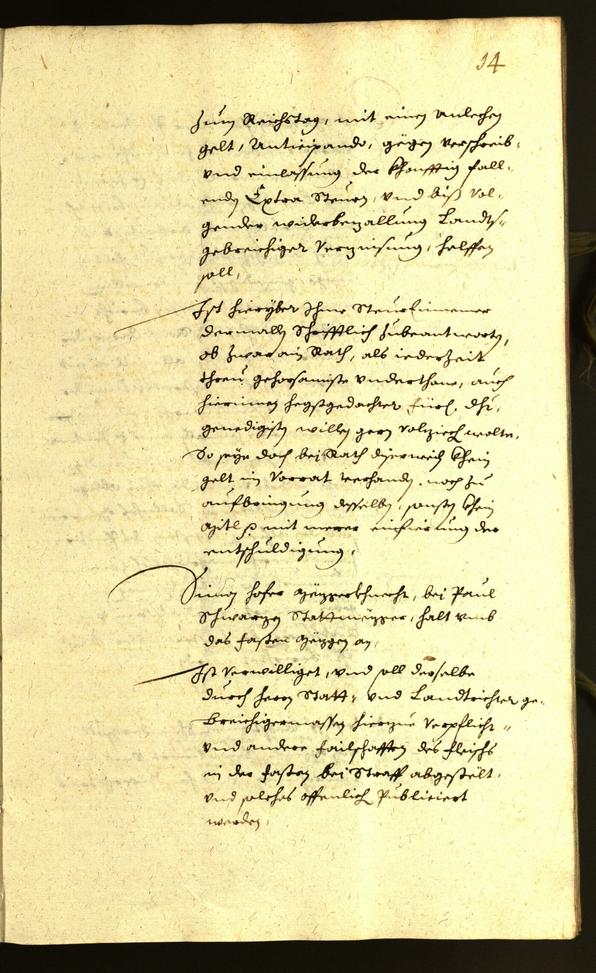 14
zum Reichstag, mit einem anlechen
gelt, Anticipando, gegen verschreib-
und einlassung der khonfftig fall-
enden Extra Steurn, und biß vol-
gender widerbezallung Landts-
gebreichiger verzinsung, helffen
soll,
Ist hieryber Ihme Steur Einnemer
dermalls schrifftlich zubeantworten,
ob zwar ain Rath, als iederzeit
threu gehorsamiste underthone, auch
hierinnen hegstgedachter fürl. Dht.
genedigisten willen gern volziech wolte,
So seye doch bei Rath diserweil khein
gelt in Vorrat verhanden, noch zu
aufbringung desselben, sonsten khein
mitl, mit merer einfierung der
entschuldigung,
Simon hofer Mezgerkhnecht, bei Paul
Schwarzen Stattmezger, halt umb
das fasten Mezgen an,
Ist verwilliget, und soll derselbe
durch herrn Statt: und Landtrichter ge-
breichigermassen hierzue verpflicht
und andere failschafften des fleischs
in der fasten bei Straff abgestelt,
und solches offenlich Publiciert
werden,